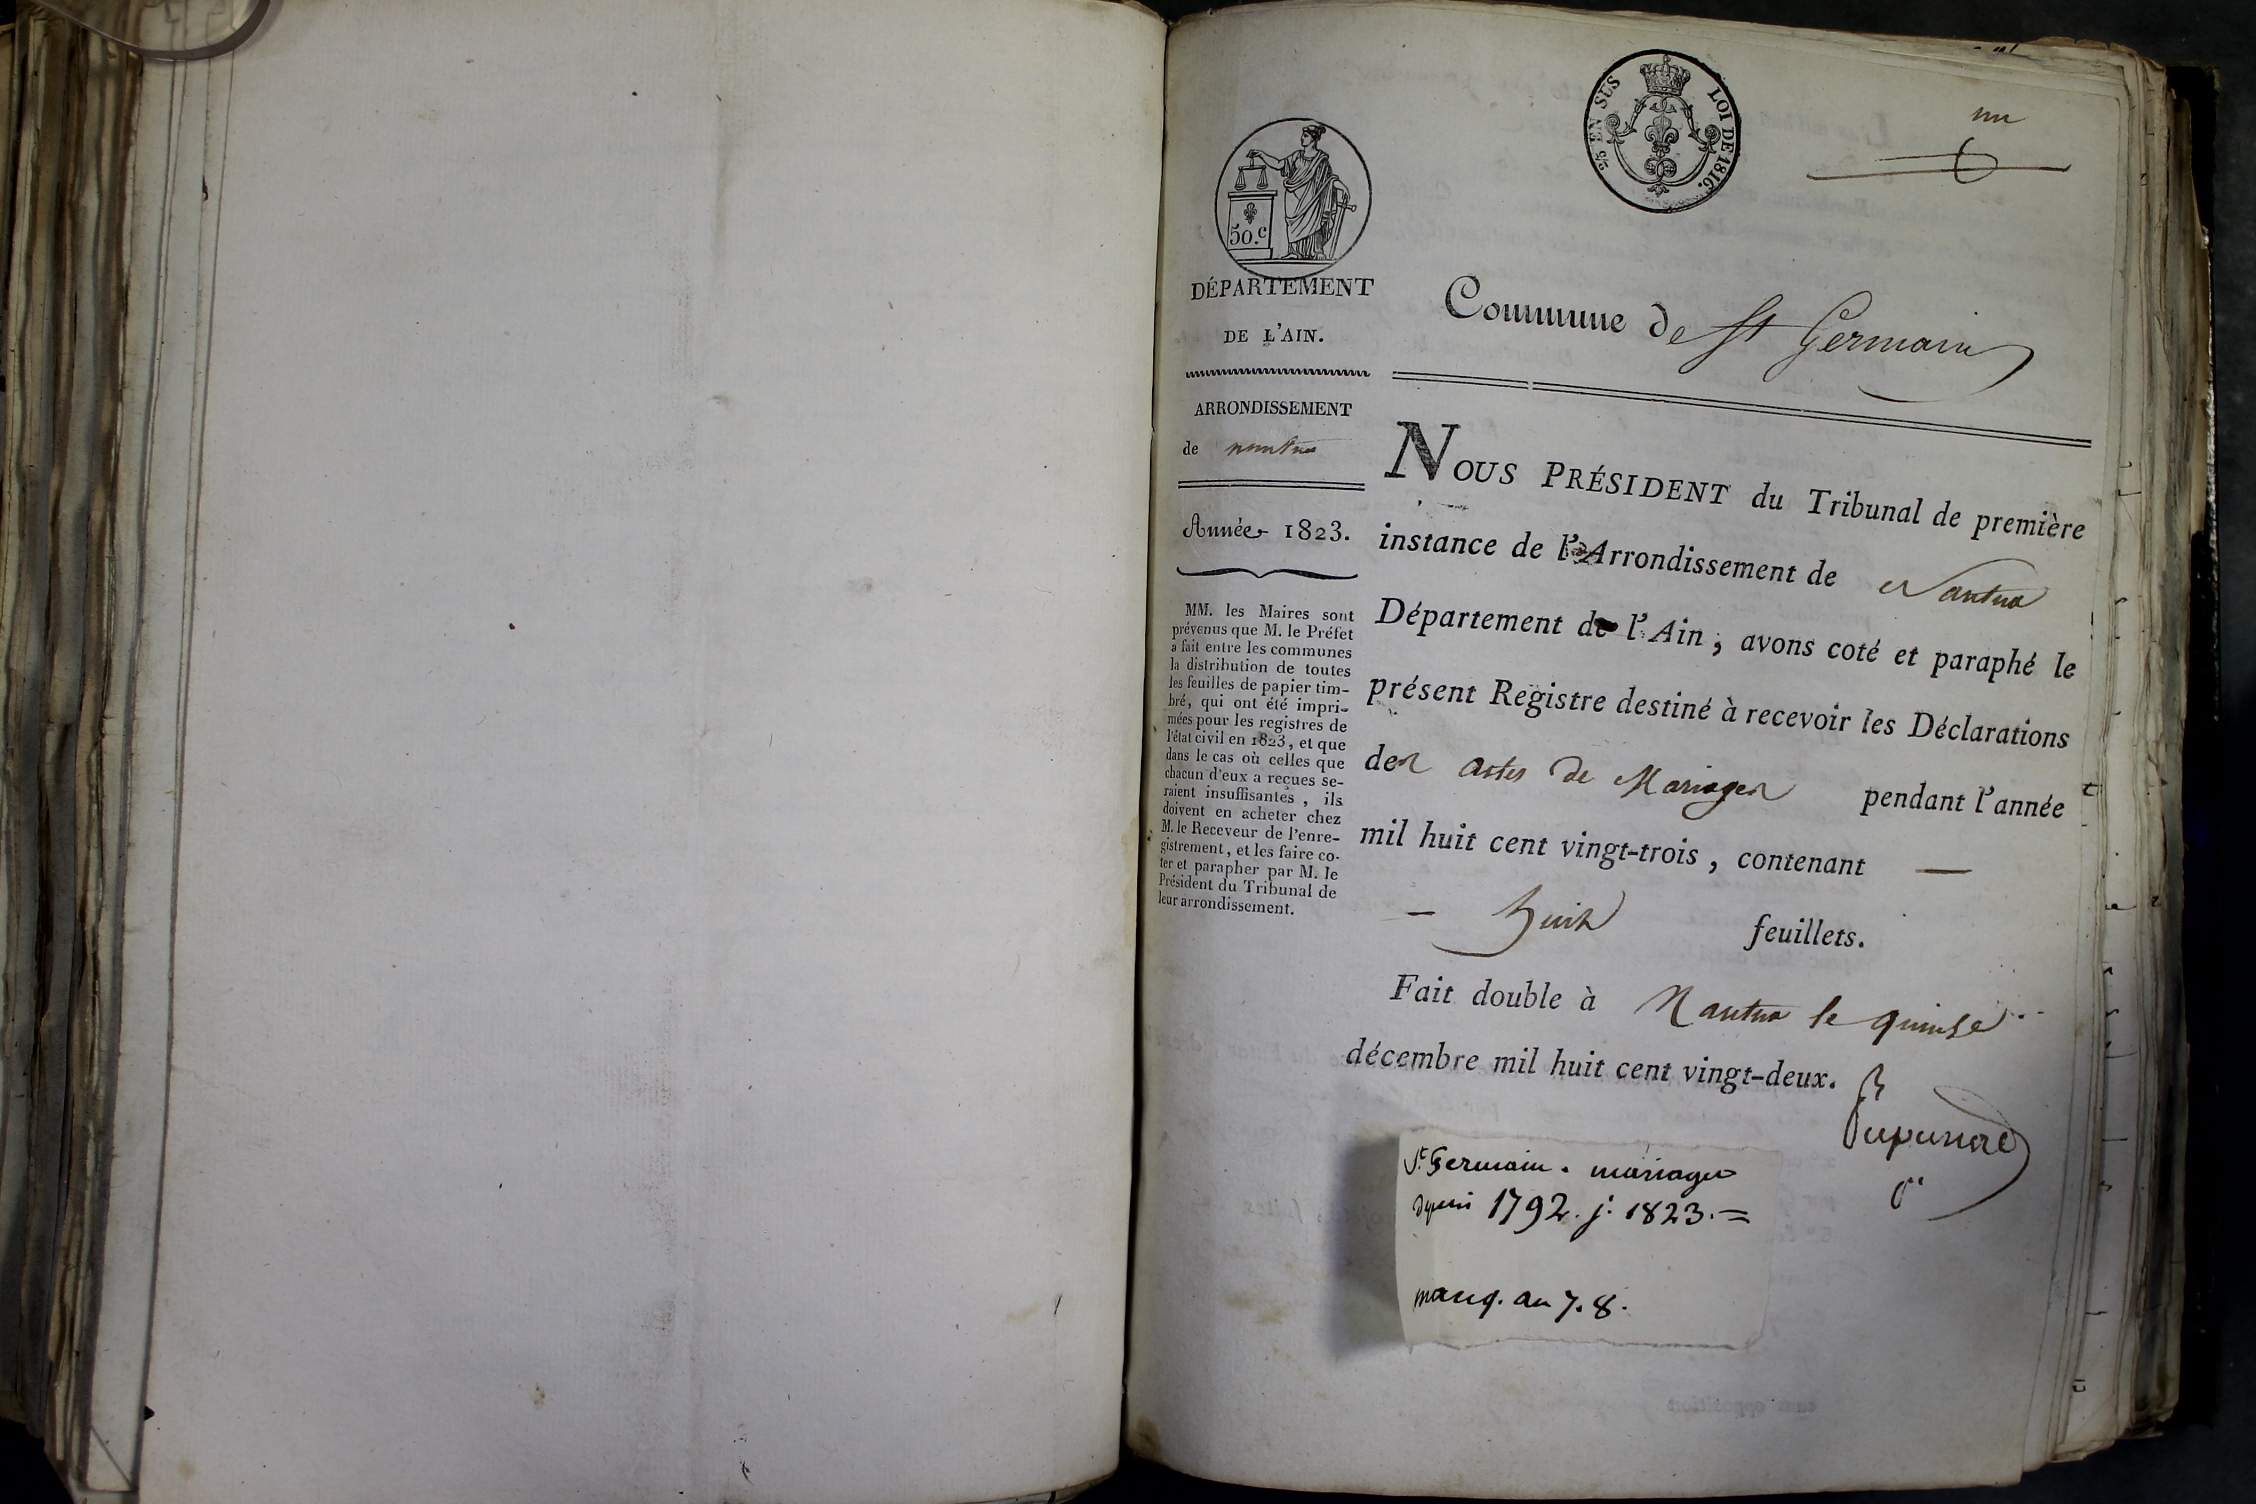 2/10 EN SUS
LOI DE 1816.
un
50.c
DÉPARTEMENT
DE L'AIN.
ARRONDISSEMENT
de nantua
Année 1823.
MM. les Maires sont
prévenus que M. le Préfet
a fait entre les communes
la distribution de toutes
les feuilles de papier tim-
bré, qui ont été impri-
mées pour les registres de
l'état civil en 1823, et que
dans le cas où celles que
chacun d'eux a reçues se-
raient insuffisantes, ils
doivent en acheter chez
M. le Receveur de l'enre-
gistrement, et les faire co-
ter et parapher par M. le
Président du Tribunal de
leur arrondissement.
Commune de St Germain
NOUS PRÉSIDENT du Tribunal de première
instance de l'Arrondissement de Nantua
Département de l'Ain, avons coté et paraphé le
présent Registre destiné à recevoir les Déclarations
des actes de Mariages pendant l'année
mil huit cent vingt-trois, contenant —
— huit feuillets.
Fait double à Nantua le quinze
décembre mil huit cent vingt-deux.
St Germain. mariages
depuis 1792. j. 1823. =
manq. an 7. 8.